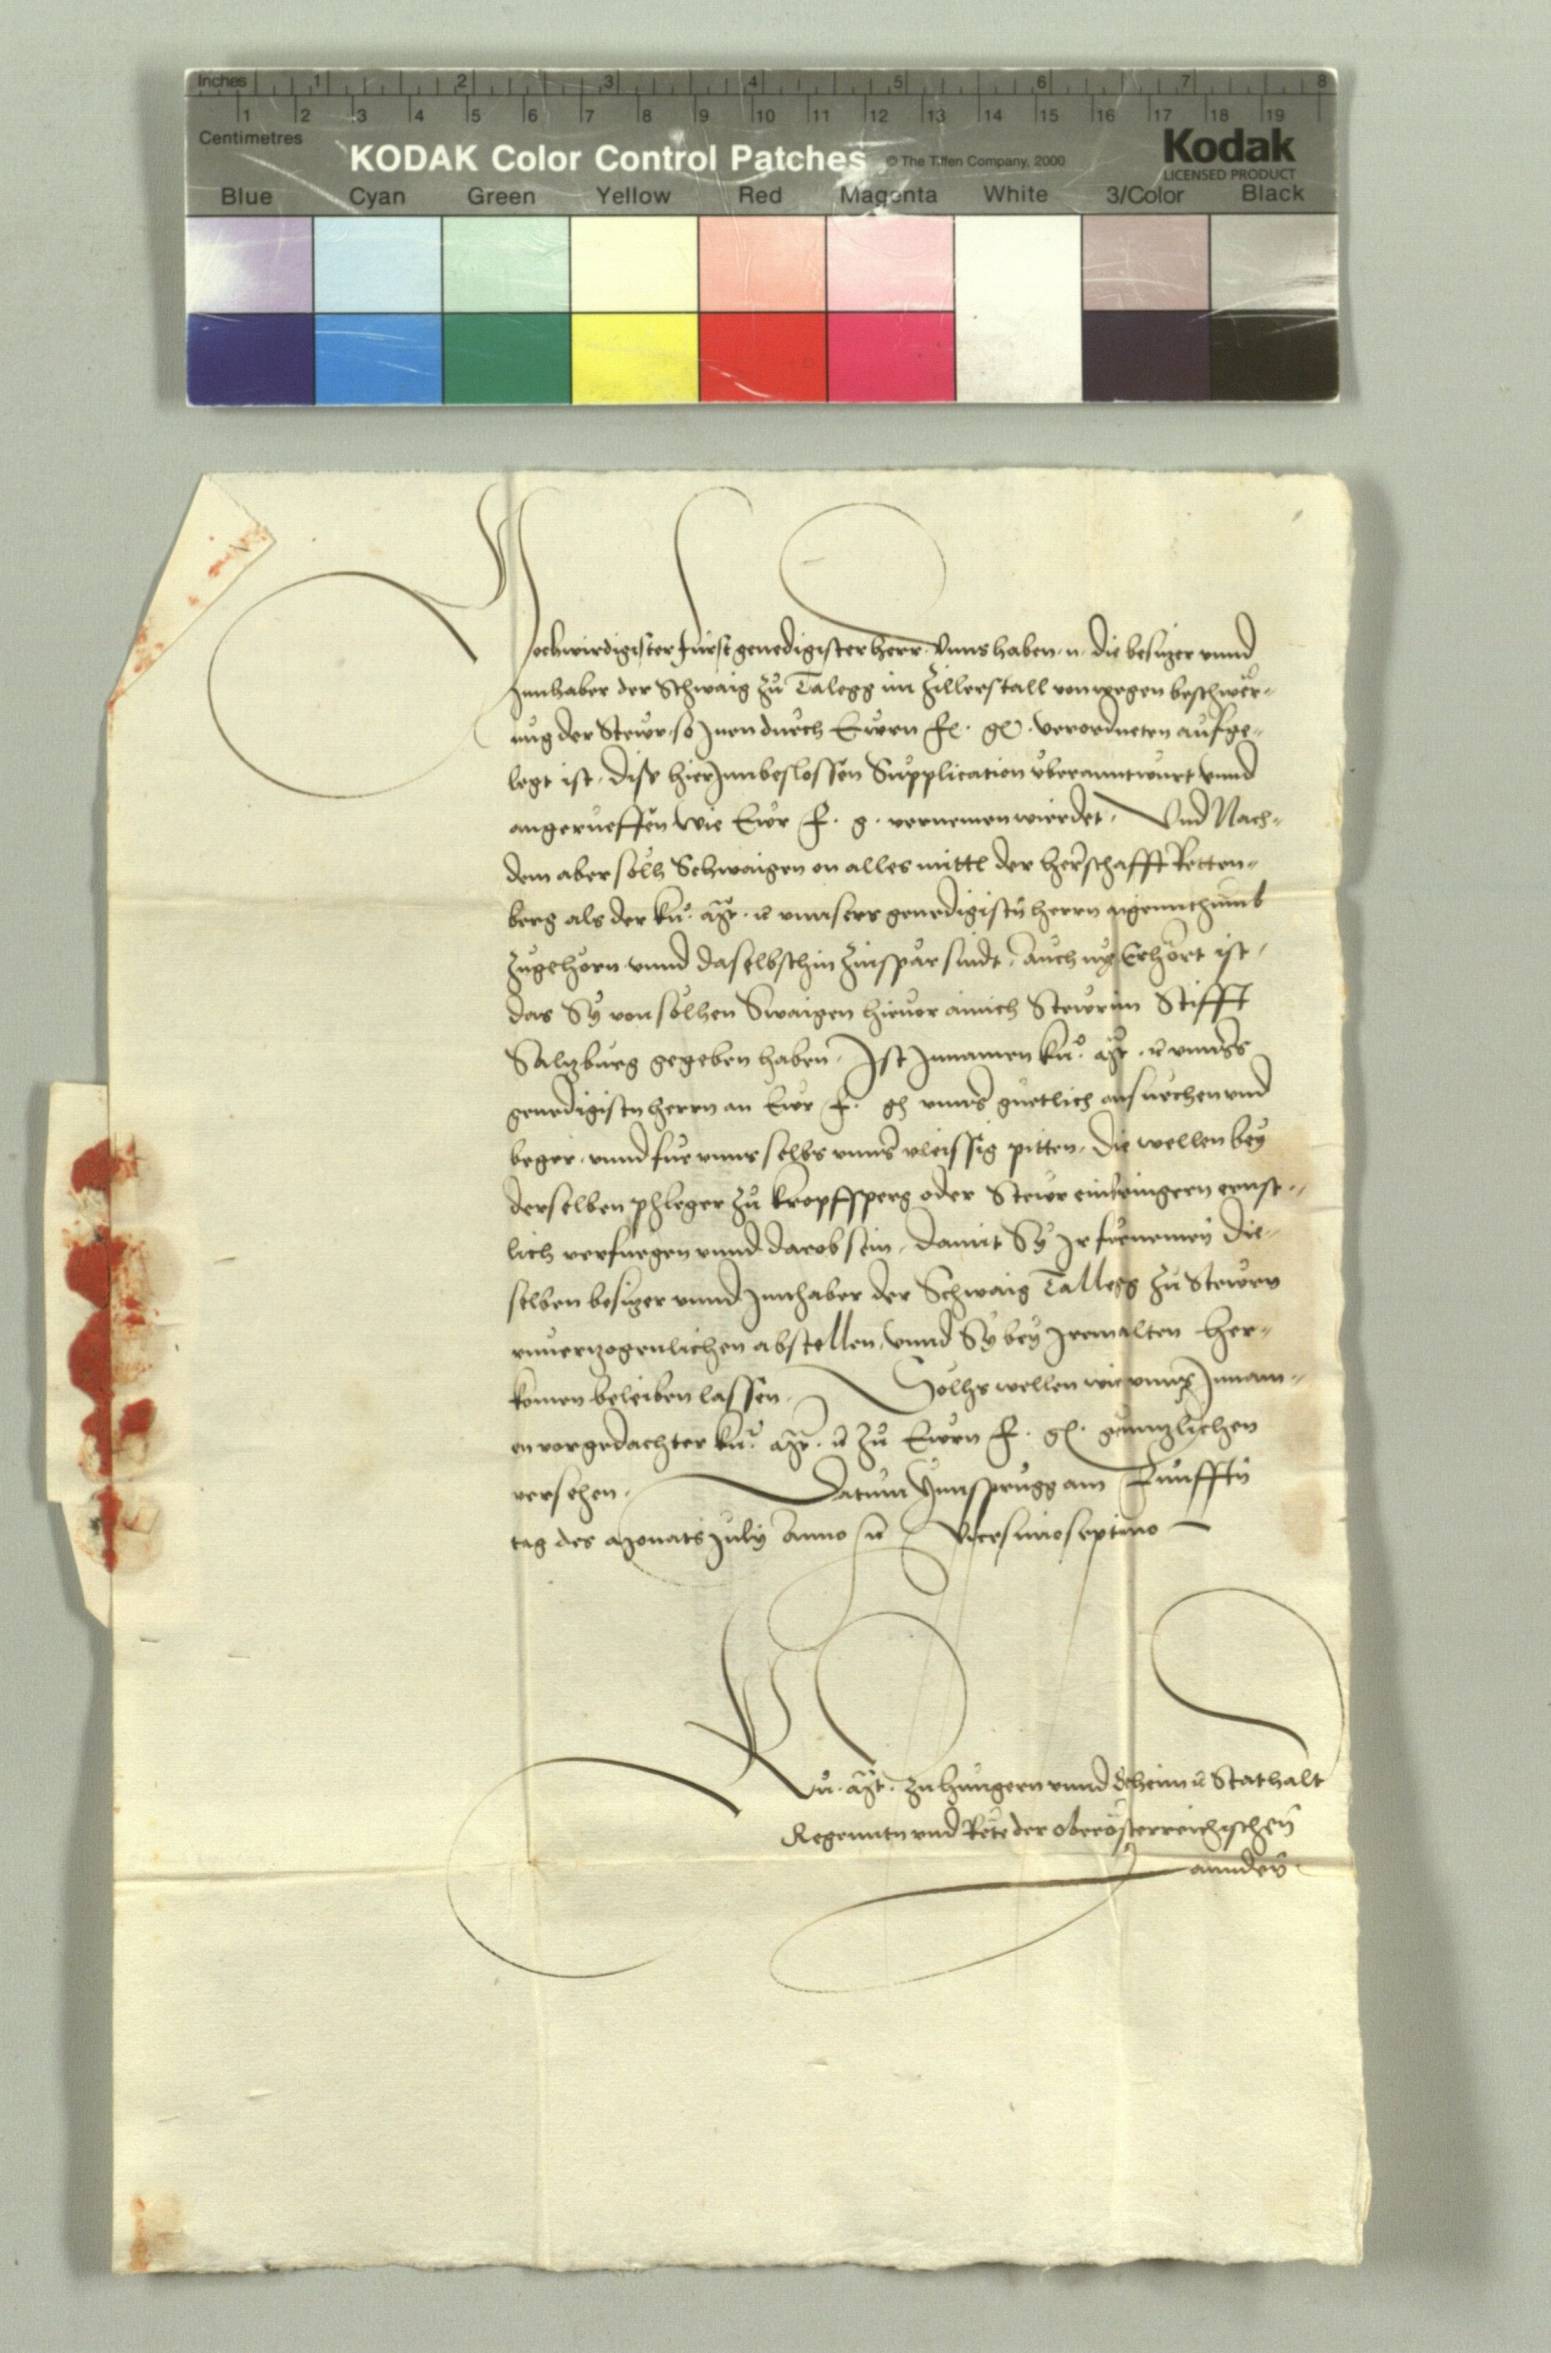 Inches 1 2 3 4 5 6 7 8
1 2 3 4 5 6 7 8 9 10 11 12 13 14 15 16 17 18 19
Centimetres
KODAK Color Control Patches © The Tiffen Company, 2000 Kodak
LICENSED PRODUCT
Blue Cyan Green Yellow Red Magenta White 3/Color Black
Hochwirdigister fürst genedigister herr. Unns haben. n. die besitzer unnd
Jnnhaber der Schwaig zů Talegg im Zillerstall von wegen beschwer-
nng der Stewr, so Jnen durch Ewrn f. g. verordneten aufge-
legt ist, dise hierJnnbeslossen Supplication uberanntwurt unnd
angerueffen wie Ewr f. g. vernemen wierdet. Und Nach-
dem aber solh Schwaigen on alles mittl der herschafft Retten-
berg als der ku. Mt. unnsers genedigistn herrn aigennthumb
zugehorn unnd daselbsthin zinspar sindt, auch nye Erhört ist,
das Sy von solhen Swaigen hieuor ainich Stewr im Stifft
Salzburg gegeben haben, Ist Jnnamen ku. Mt. unnsers
genedigistn herrn an Ewr f. g. unns guetlich ansuechen und
beger, unnd fur unns selbs unns vleissig pitten, Die wellen bey
derselben phleger zů kropfsperg oder Stewr einbringern ernst-
lich verfuegen unnd darob sein, damit Sy Jr furnemen die-
selben besitzer unnd Jnnhaber der Schwaig Tallegg zu Stewrn
unuerzogenlichen abstellen, unnd Sy bey Jrem alten her-
komen beleiben lassen. Solhs wellen wir unns Jnnam-
en vorgedachter ku. Mt. zů Ewrn f. g. gennzlichen
versehen. Datum Ynnsprugg am Funfftn
tag des Monats July Anno Vicesimoseptimo
Ku. Mt. zu hungern unnd Beheim Stathalt
Regenntn und Rete der oberösterreichischen
Lannden